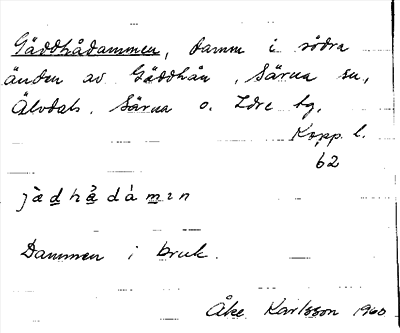 Gäddhådammen, damm i södra
änden av Gäddhån, Särna sn,
Älvdals, Särna o. Idre tg,
Kopp. l.
62
jàdhå̀dámın
Dammen i bruk.
Åke Karlsson 1960